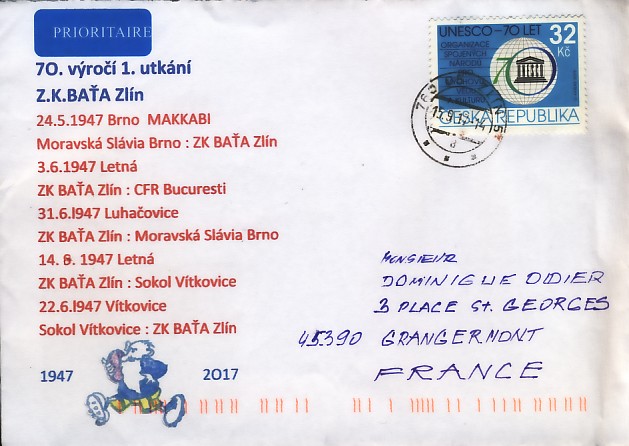 PRIORITAIRE
70. výročí 1. utkání
Z.K.BAŤA Zlín
24.5.1947 Brno MAKKABI
Moravská Slávia Brno : ZK BAŤA Zlín
3.6.1947 Letná
ZK BAŤA Zlín : CFR Bucuresti
31.6.l947 Luhačovice
ZK BAŤA Zlín : Moravská Slávia Brno
14. 8. 1947 Letná
ZK BAŤA Zlín : Sokol Vítkovice
22.6.l947 Vítkovice
Sokol Vítkovice : ZK BAŤA Zlín
1947 2017
UNESCO – 70 LET
32 Kč
ORGANIZACE
SPOJENÝCH
NÁRODŮ
70
ČESKÁ REPUBLIKA
MONSIEUR
DOMINIQUE DIDIER
3 PLACE St. GEORGES
45390 GRANGERMONT
FRANCE